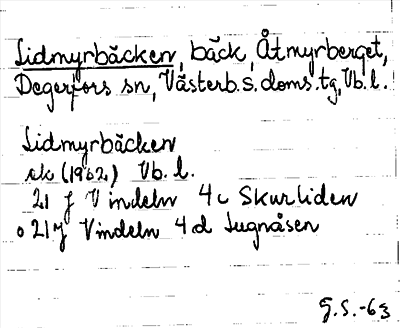 Lidmyrbäcken, bäck, Åtmyrberget,
Degerfors sn, Västerb. s. doms. tg, Vb. l.
Lidmyrbäcken
ek (1962) Vb. l.
21 J Vindeln 4c Skurliden
o 21 J Vindeln 4d Lugnåsen
G.S.-63